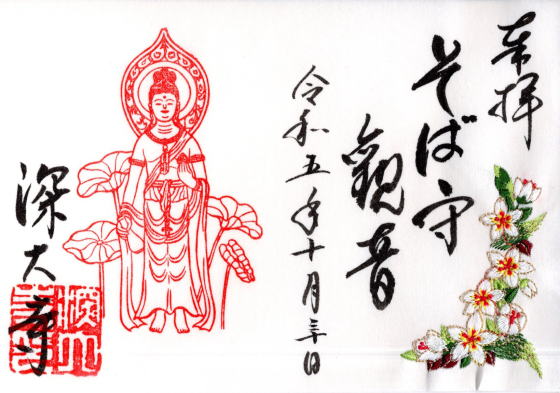 奉拝
そば守
観音
令和五年十月三十日
深大寺